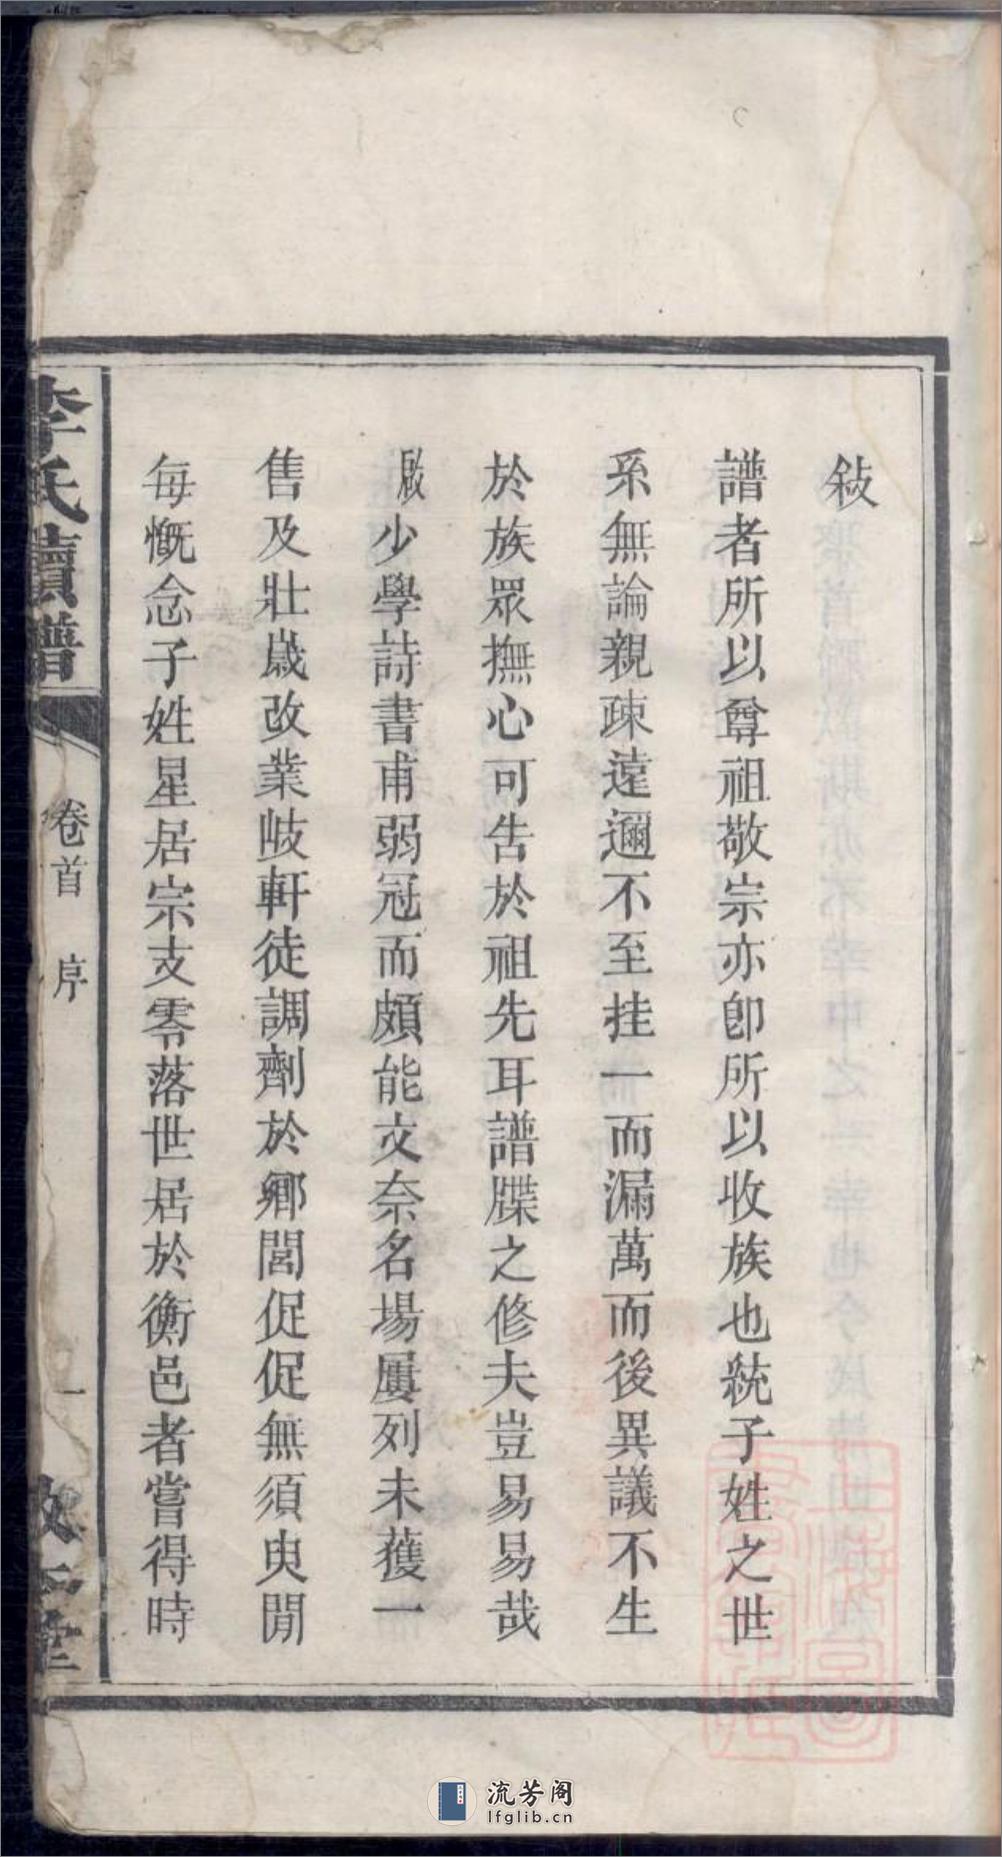 敍
譜者所以尊祖敬宗亦卽所以收族也統子姓之世
系無論親疎遠邇不至挂一而漏萬而後異議不生
於族眾撫心可告於祖先耳譜牒之修夫豈易易哉
啟少學詩書甫弱冠而頗能文奈名場屢列未獲一
售及壯歲改業岐軒徒調劑於鄉閭促促無須臾閒
每慨念子姓星居宗支零落世居於衡邑者嘗得時
李氏續譜
卷首 序
一
流芳阁
lfglib.cn